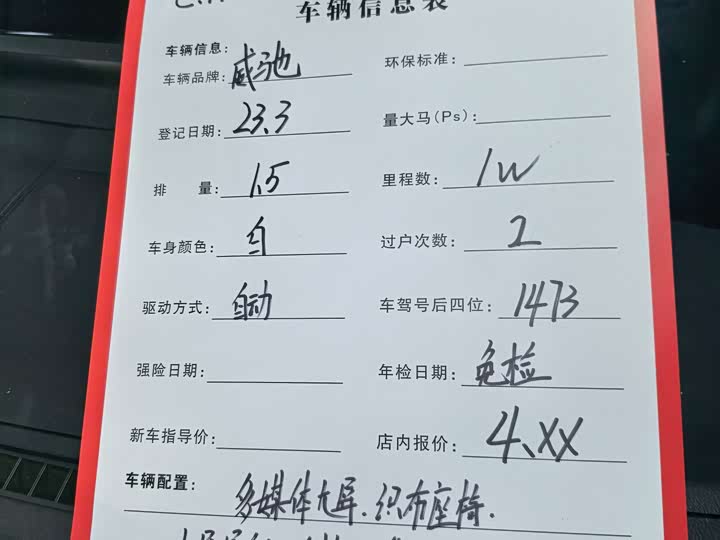 车辆信息表
车辆信息:
车辆品牌: 威驰 环保标准:
登记日期: 23.3 量大马(Ps):
排 量: 1.5 里程数: 1W
车身颜色: 白 过户次数: 2
驱动方式: 自动 车驾号后四位: 1473
强险日期: 年检日期: 免检
新车指导价: 店内报价: 4.XX
车辆配置: 多媒体大屏.织布座椅.